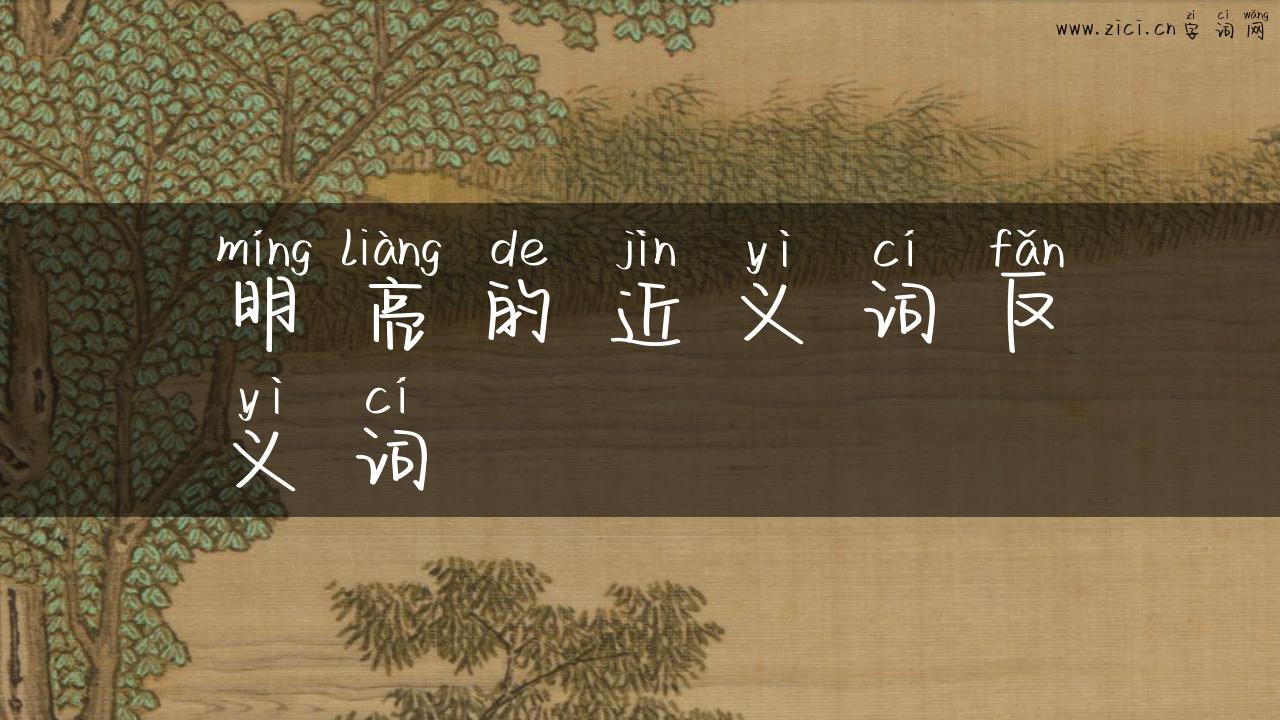 zì cí wǎng
www.zici.cn 字词网
míng liàng de jìn yì cí fǎn
明亮的近义词反
yì cí
义词